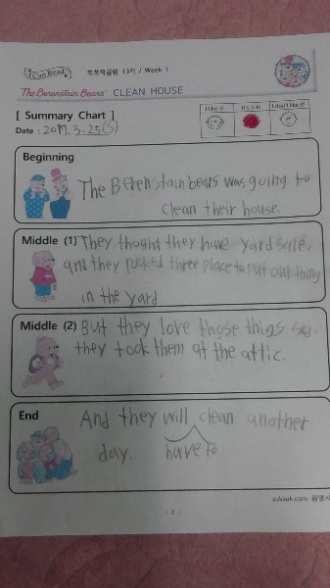 I Can Read!
쑥쑥북클럽 13기 / Week 1
The Berenstain Bears' CLEAN HOUSE
[ Summary Chart ]
Date : 2017. 3. 25(S)
I like it!
It's OK!
I don't like it!
Beginning
The Berenstain bears was going to
clean their house.
Middle (1) They thoght they have yard sale,
and they three place to put out
in the yard
Middle (2) But they love those so
they took them at the attic.
End
And they will clean another
day. have to
- 2 -
suksuk.com